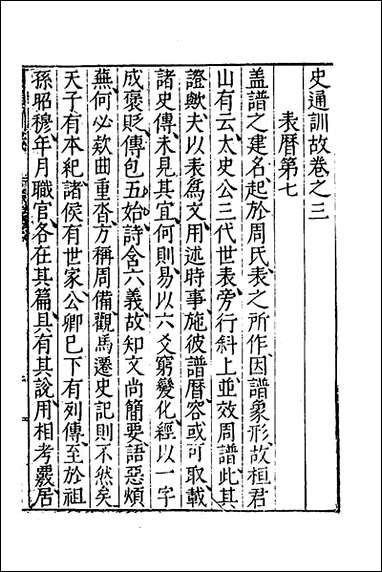 史通訓故卷之三
表曆第七
盖譜之建名起於周氏表之所作因譜象形故桓君
山有云太史公三代世表旁行斜上並效周譜此其
證歟夫以表爲文用述時事施彼譜曆容或可取載
諸史傳未見其宜何則易以六爻窮變化經以一字
成褒貶傳包五始詩含六義故知文尚簡要語惡煩
蕪何必欵曲重沓方稱周備觀馬遷史記則不然矣
天子有本紀諸侯有世家公卿巳下有列傳至於祖
孫昭穆年月職官各在其篇具有其說用相考覈居